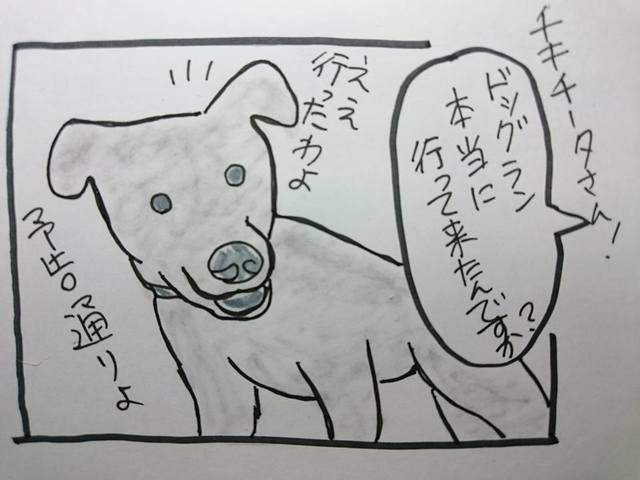 チキチータさん!
ドッグラン
本当に
行って来たんですか?
ええ
行ったわよ
予告通りよ